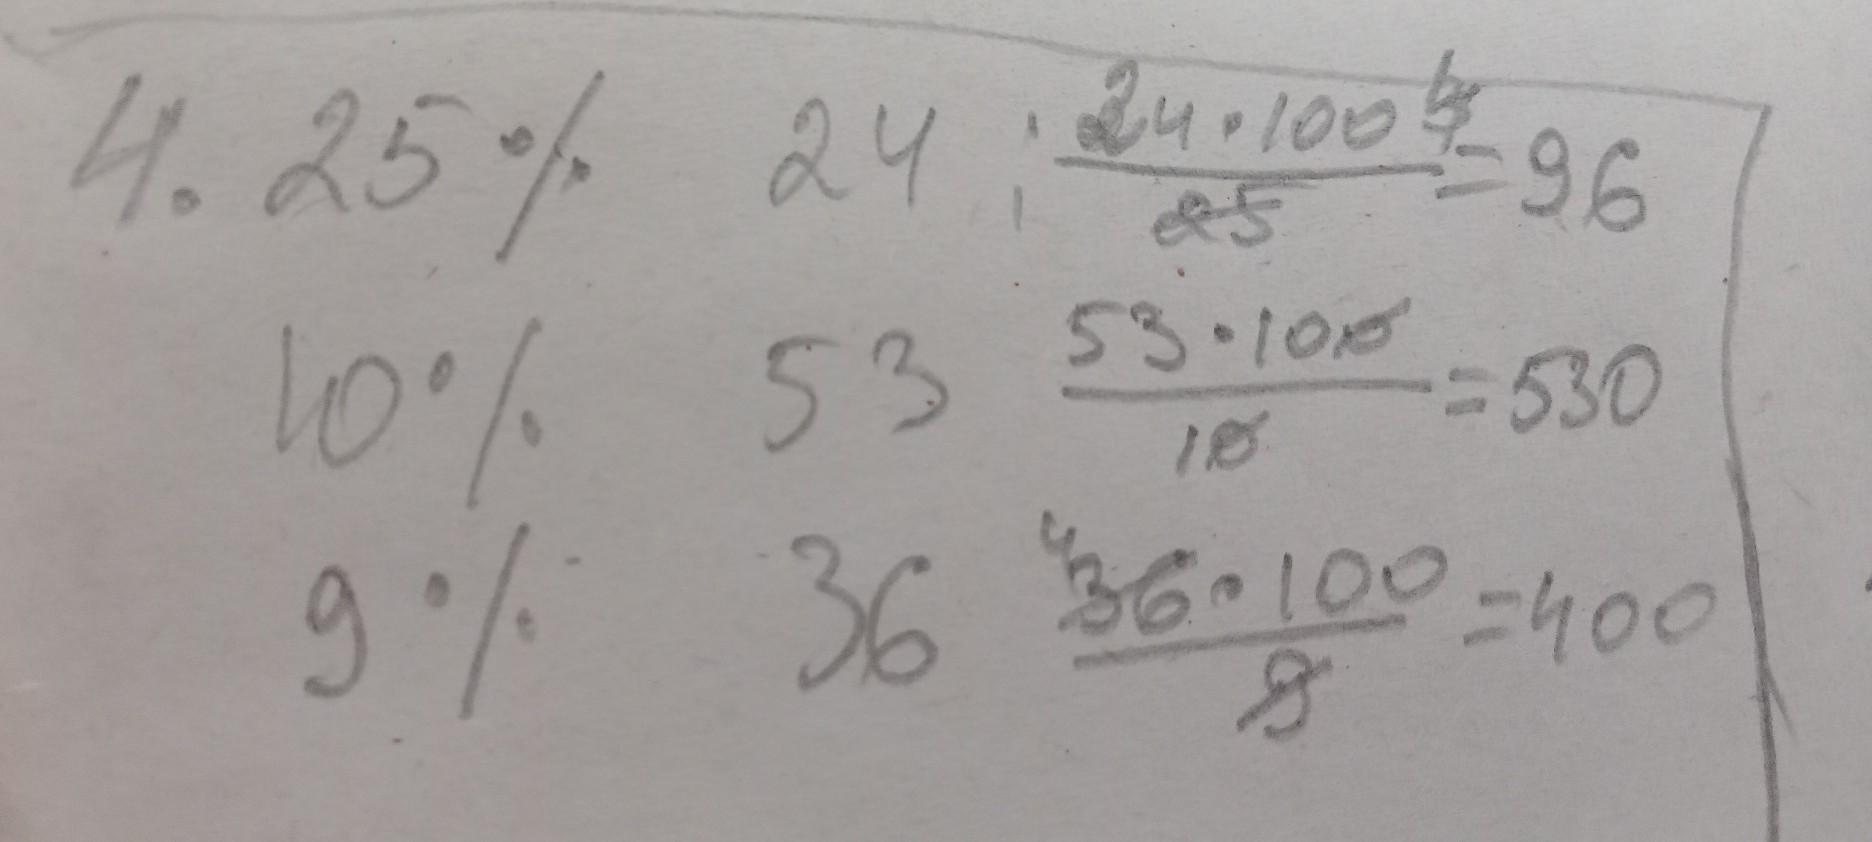 4. 25% 24 : 24·100 4 / 25 = 96
10% 53 53·100 / 10 = 530
9% 36 4 36·100 / 9 = 400